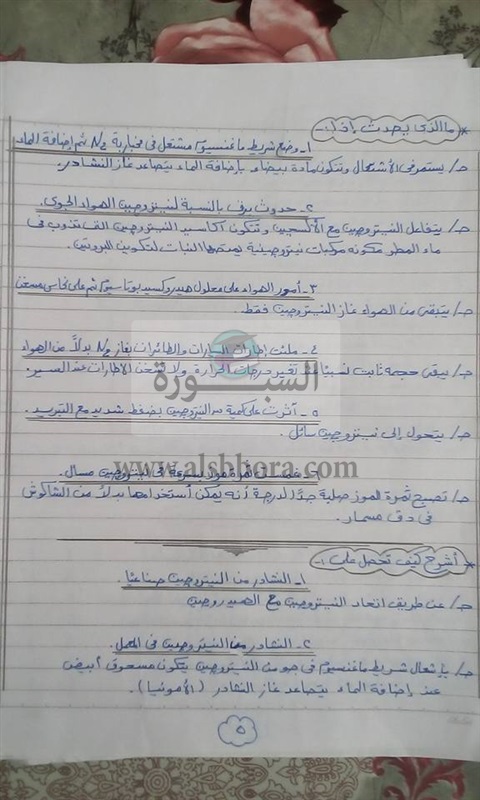 * ما الذى يحدث إذا :-
١- وضع شريط ماغنسيوم مشتعل فى مخبار به N2 ثم إضافة الماء
جـ/ يستمر فى الأشتعال وتتكون مادة بيضاء بإضافة الماء يتصاعد غاز النشادر.
٢- حدوث برق بالنسبة لنيتروجين الهواء الجوى.
جـ/ يتفاعل النيتروجين مع الأكسجين وتتكون أكاسيد النيتروجين التى تذوب فى
ماء المطر مكونه مركبات نيتروجينية يمتصها النبات لتكوين البروتين.
٣- أمرر الهواء على محلول هيدروكسيد بوتاسيوم ثم على نحاس مسخن
جـ/ يتبقى من الهواء غاز النيتروجين فقط.
٤- ملئت إطارات السيارات والطائرات بغاز N2 بدلاً من الهواء
جـ/ يبقى حجمه ثابت نسبيًا عند تغير درجات الحرارة ولا تسخن الاطارات عند السير.
السبورة
٥- أثرت على كمية من النيتروجين بضغط شديد مع التبريد.
جـ/ يتحول إلى نيتروجين سائل.
www.alshbora.com
٦- غمست ثمرة موز بسرعة فى نيتروجين مسال.
جـ/ تصبح ثمرة الموز صلبة جدًا لدرجة أنه يمكن أستخدامها بدلاً من الشاكوش
فى دق مسمار.
* أشرح كيف تحصل على :-
١- النشادر من النيتروجين صناعيًا.
جـ/ عن طريق اتحاد النيتروجين مع الهيدروجين
٢- النشادر من النيتروجين فى المعمل.
جـ/ بإشعال شريط ماغنسيوم فى جو من النيتروجين يتكون مسحوق أبيض
عند إضافة الماء يتصاعد غاز النشادر (الأمونيا).
٥